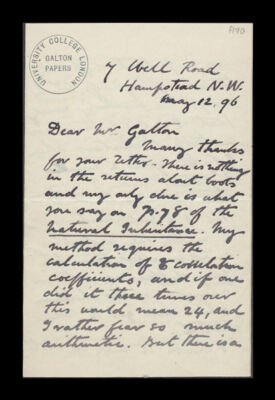 UNIVERSITY COLLEGE LONDON
GALTON
PAPERS
7 Well Road
Hampstead N.W.
May 12. 96
Dear Mr Galton
Many thanks
for your letter. There is nothing
in the returns about
and my only clue is what
you say on p. 78 of the
Natural Inheritance. My
method requires the
calculation of 8 correlation
coefficients, and if one
did it three times over
this would mean 24, and
I rather fear so much
arithmetic. But there is a